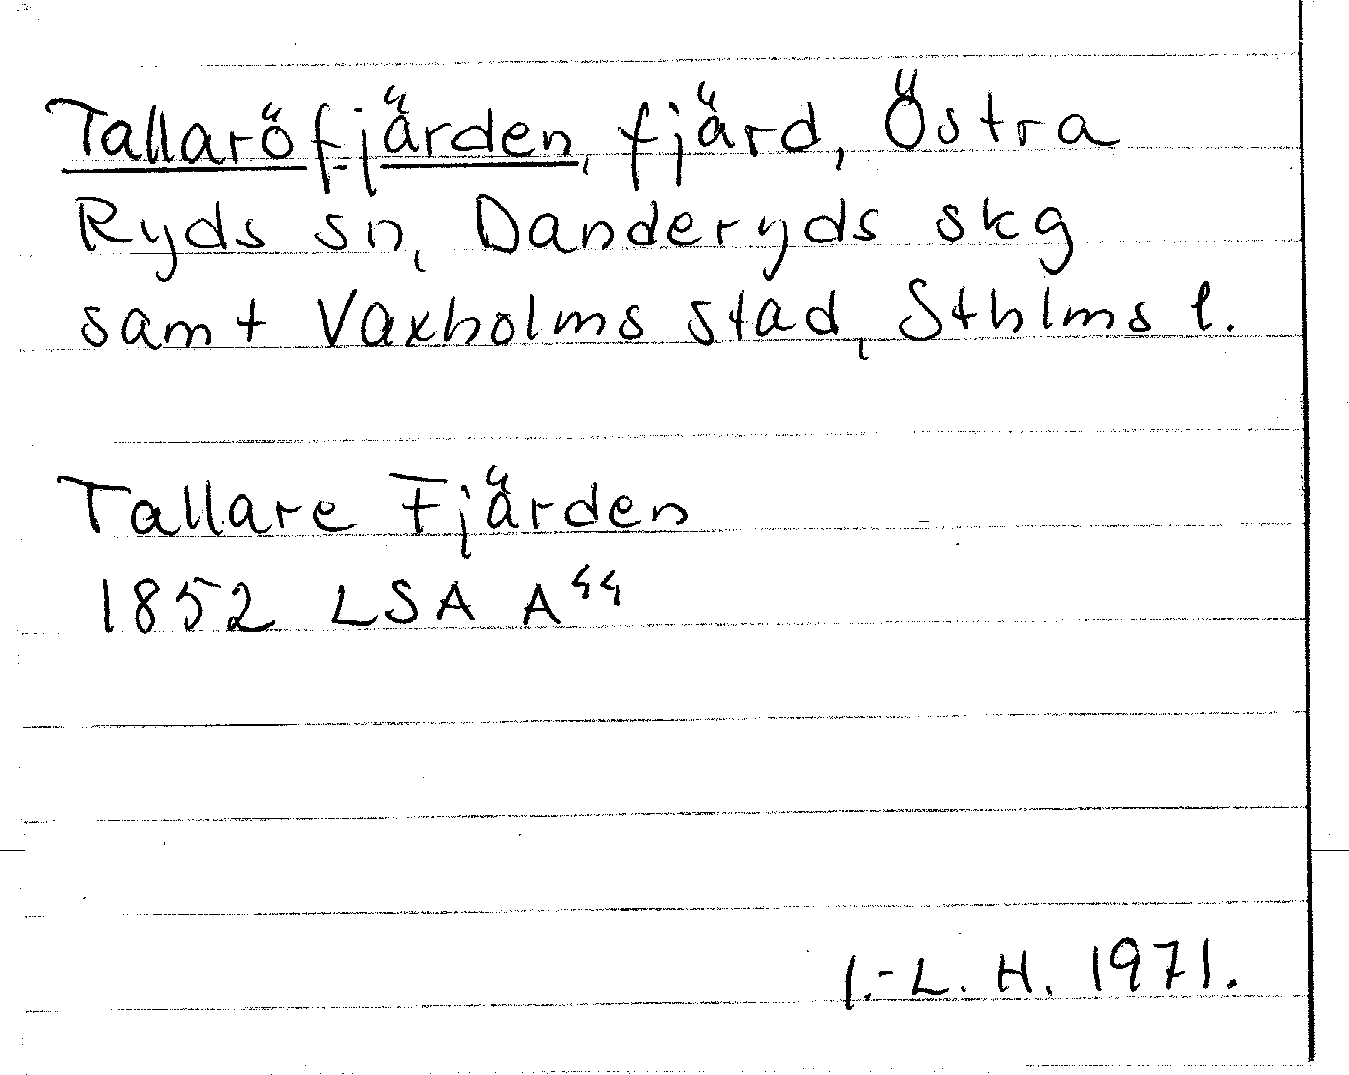 Tallaröfjärden, fjärd, Östra
Ryds sn, Danderyds skg
samt Vaxholms stad, Sthlms l.
Tallare Fjärden
1852 LSA A⁴⁴
I.-L. H. 1971.